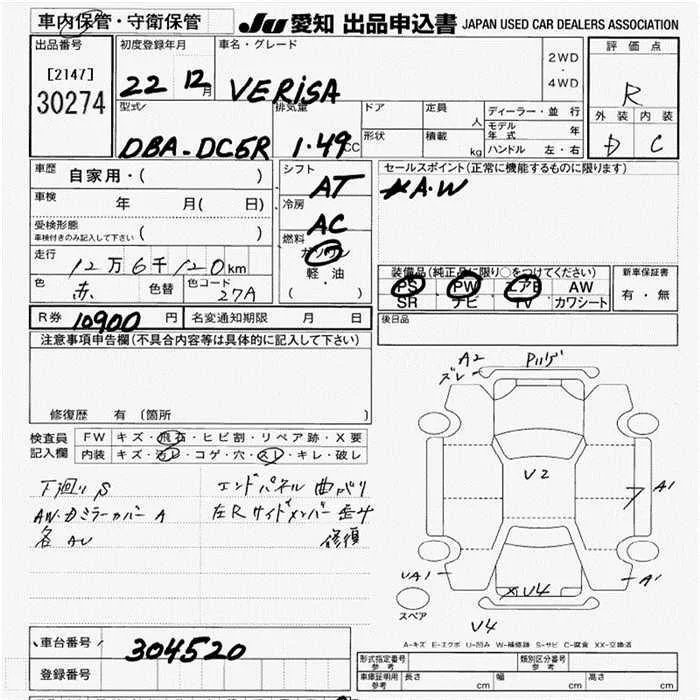 車内保管・守衛保管 JU 愛知 出品申込書 JAPAN USED CAR DEALERS ASSOCIATION
出品番号 初度登録年月 車名・グレード 2WD・4WD 評価点
[2147] 30274 22 12月 VERISA R
型式 排気量 ドア 定員 人 ディーラー・並行 外装 内装
DBA-DC5R 1.49cc 形状 積載 kg モデル年式 年 D C
ハンドル 左・右
車歴 自家用・( ) シフト AT セールスポイント(正常に機能するものに限ります)
A.W
車検 年 月( 日) 冷房 AC
受検形態 車検付きのみ記入して下さい ( )
燃料 ガソリン
軽・油
( )
走行 12万6千120km 装備品(純正品に限り○をつけてください) 新車保証書
色 赤 色替 色コード 27A PS PW エアB AW 有・無
SR ナビ TV カワシート
R券 10900円 名変通知期限 月 日 後日品
注意事項申告欄(不具合内容等は具体的に記入して下さい)
修復歴 有(箇所 )
検査員記入欄 FW キズ・飛石・ヒビ割・リペア跡・X要
内装 キズ・汚レ・コゲ・穴・スレ・キレ・破レ
下廻り S エンドパネル 曲がり
AW・ドミラーカバー A 左Rサイドメンバー 歪み
各 AU 修復
A2
ズレ
V2
A1
UA1
A1
XV4
V4
スペア
A-キズ E-エクボ U-凹み W-補修跡 S-サビ C-腐食 XX-交換済
車台番号 304520
登録番号
形式指定番号 参考 類別区分番号 参考
車庫証明用 参考 長さ cm 幅 cm 高さ cm